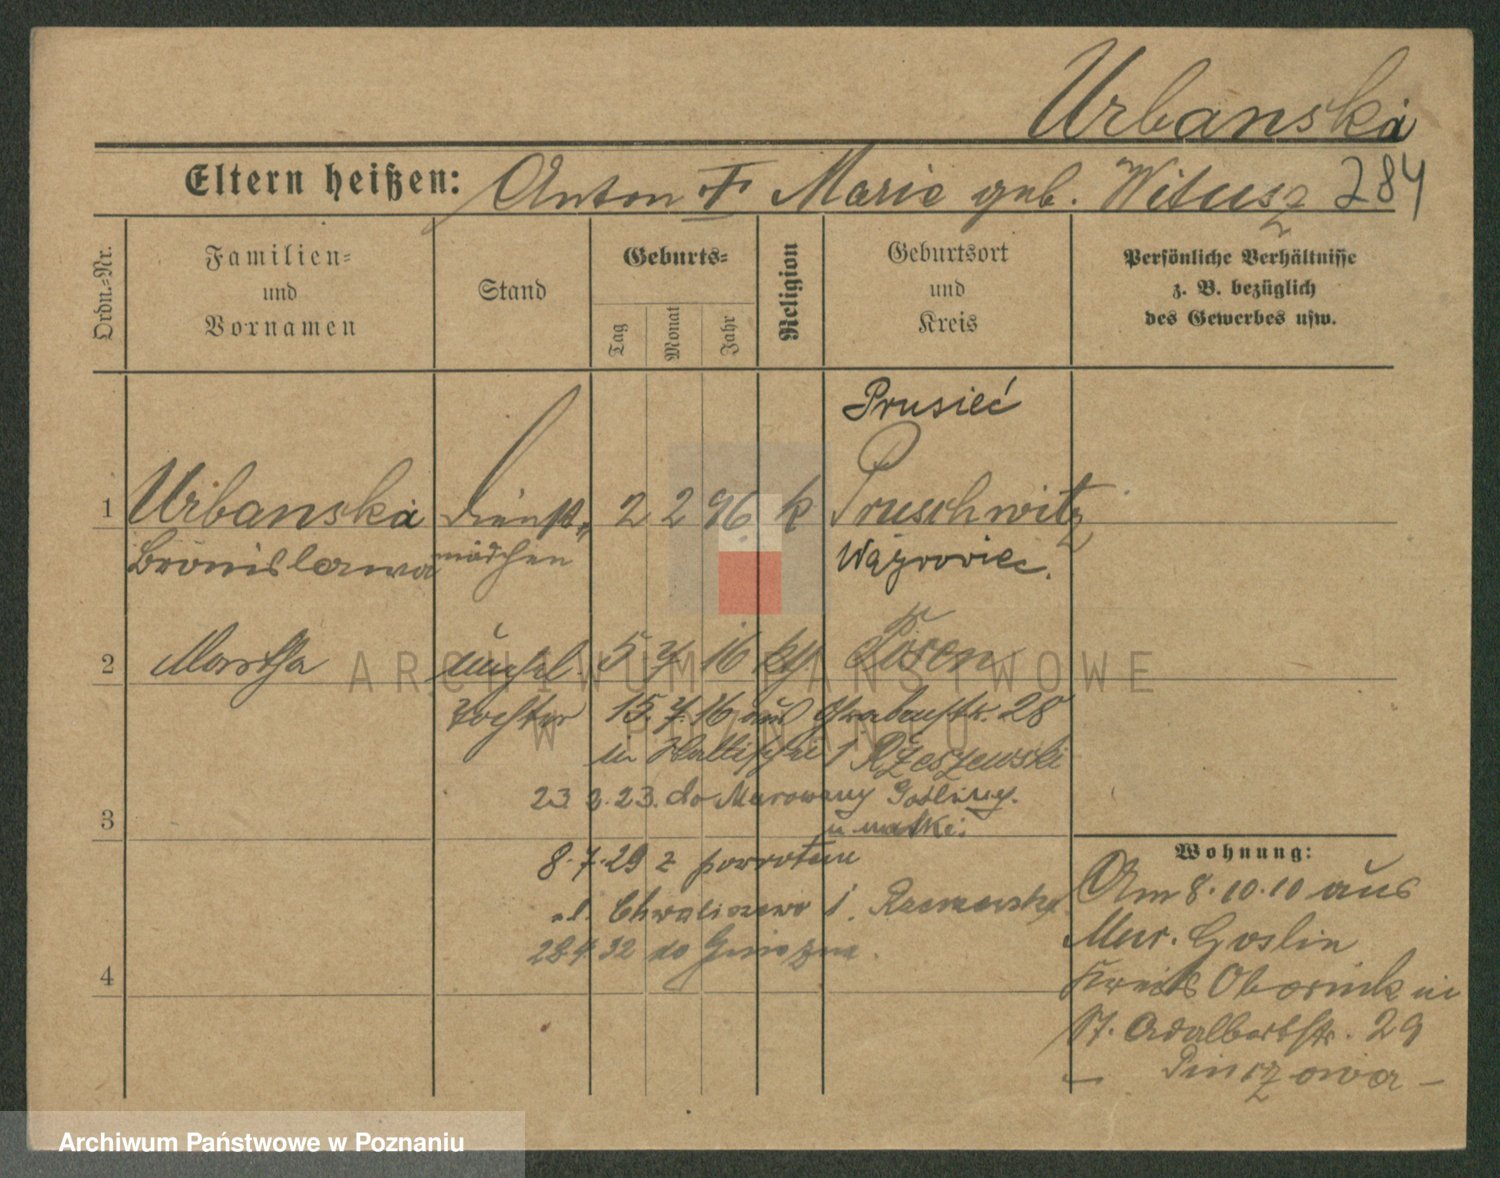 Urbanska
Eltern heißen: Anton † Marie geb. Witusz 284
Ordn.=Nr.
Familien=
und
Vornamen
Stand
Geburts=
Tag
Monat
Jahr
Religion
Geburtsort
und
Kreis
Persönliche Verhältnisse
z. B. bezüglich
des Gewerbes usw.
Prusieć
1 Urbanska Dienst= 2 2 96. k Pruschwitz
Bronislawa mädchen Wągrowiec.
2 Martha 5 7 16 Posen
tochter 15. 7. 16 aus Grabenstr. 28
in Wallischei Rzeszewski
23. 2. 23. do Murowany Gośliny.
3 u matki.
8. 7. 29 z powrotem
Chwaliszewo
28.4.32 do Gniezna.
4
Wohnung:
Am 8. 10. 10 aus
Mur. Goslin
Kreis Obornik in
St. Adalbertstr. 29
– Pinczowa –
ARCHIWUM PAŃSTWOWE
W POZNANIU
Archiwum Państwowe w Poznaniu